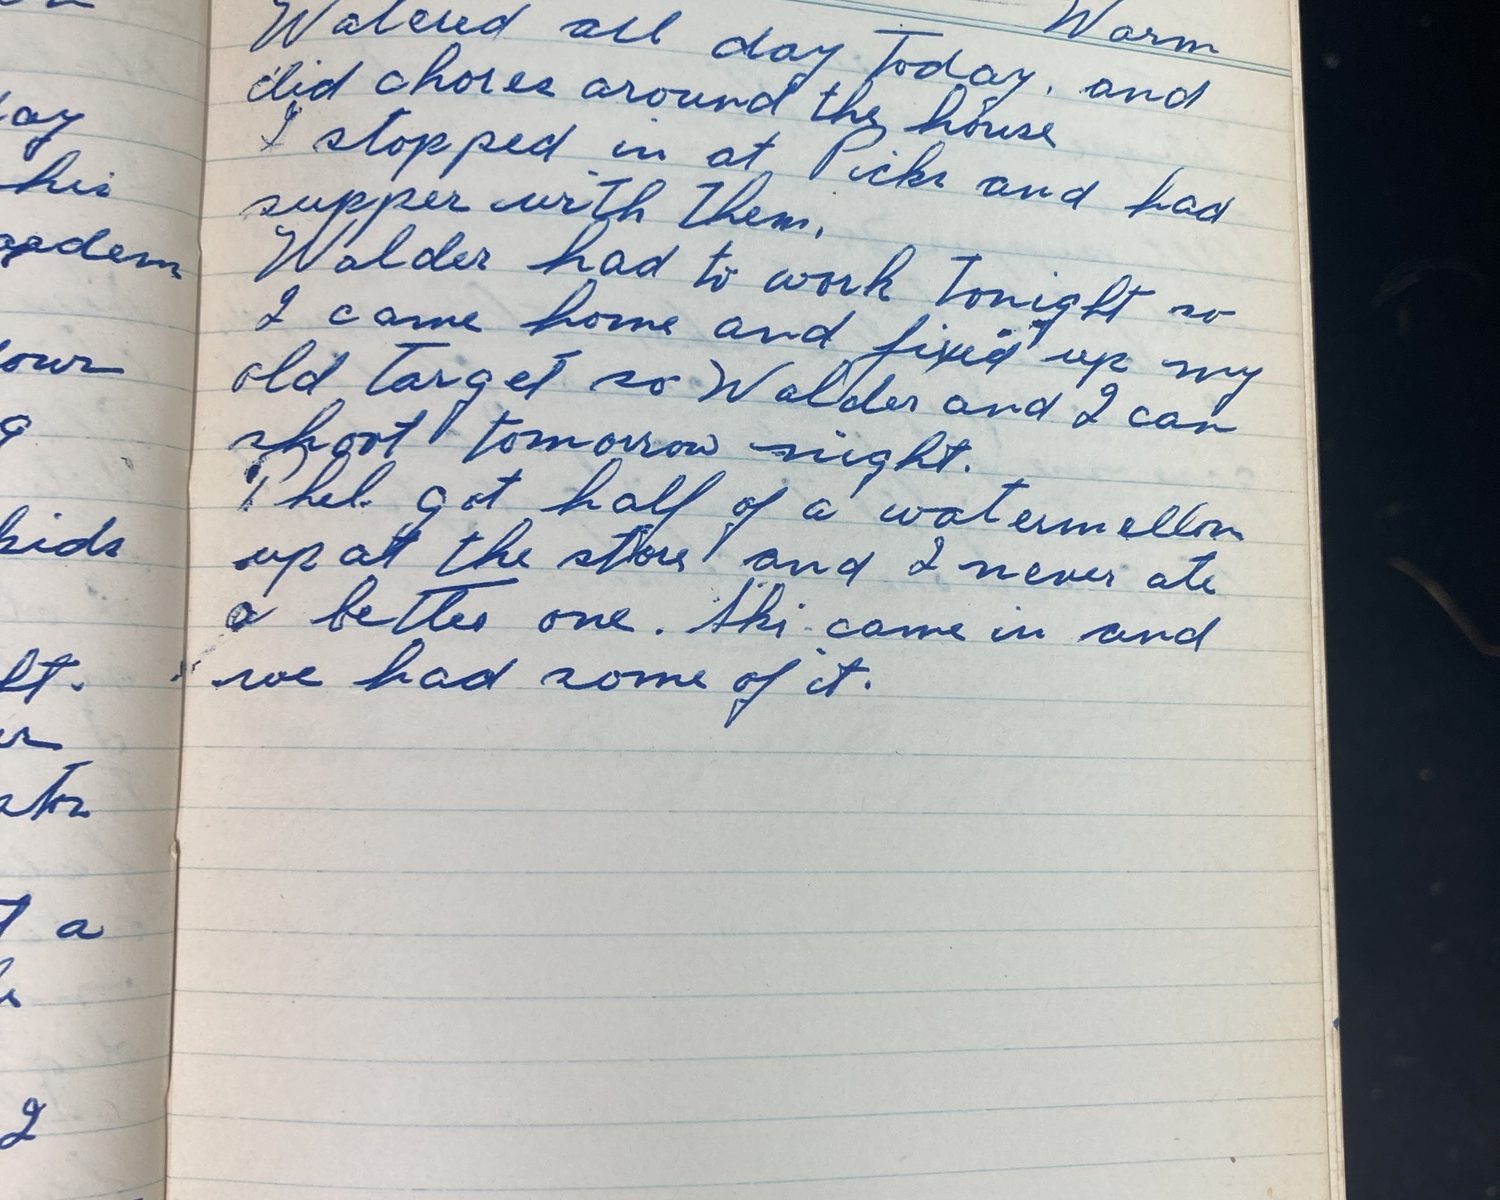 Warm
Watered all day Today, and
did chores around the house
I stopped in at Picks and had
supper with Them.
Walder had to work Tonight so
I came home and fixed up my
old Target so Walder and I can
shoot tomorrow night.
Phel. got half of a watermellon
up at the store and I never ate
a better one. Ski came in and
we had some of it.
ay
his
our
g
kids
ht.
a
I